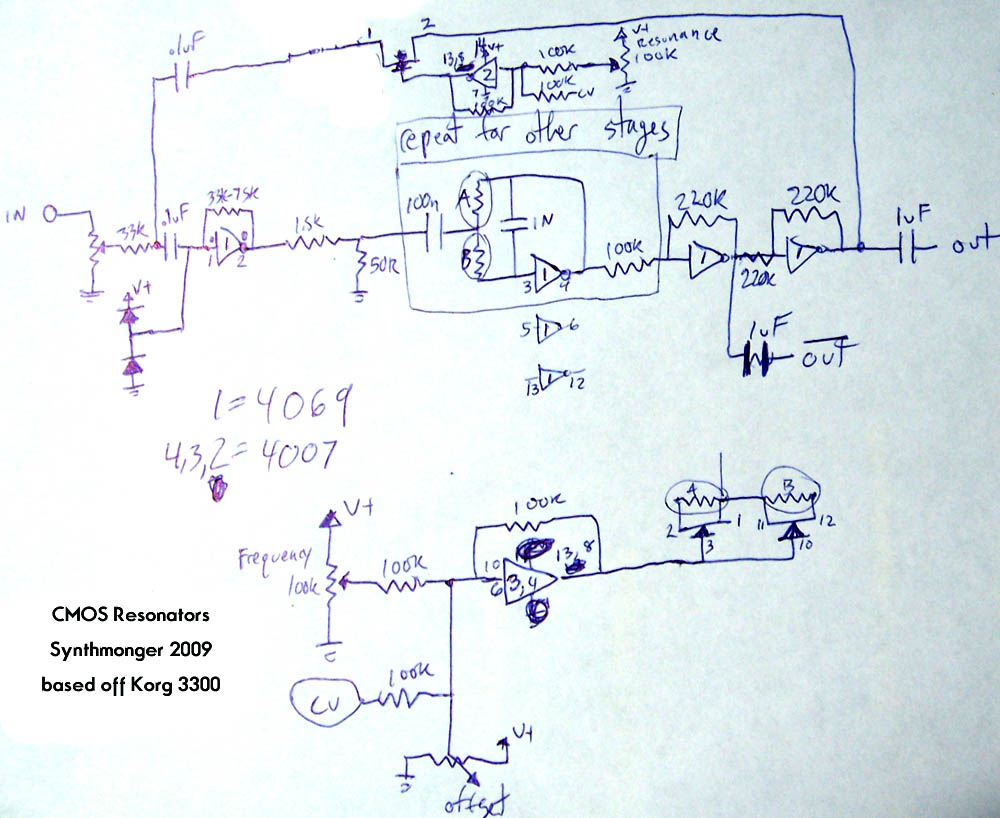 .1uF
1
2
V+
Resonance
100k
14
V+
13,8
2
7
100k
100k
CV
repeat for other stages
IN
33k
.1uF
33k-75k
1
1
2
1.5k
50R
100n
A
B
1N
1
3
4
100k
220K
1
220k
220K
1
1uF
OUT
1uF
OUT
V+
5
1
6
13
1
12
1=4069
4,3,2=4007
V+
Frequency
100k
100k
100k
10
6
3,4
13,8
A
B
2
1
3
11
12
10
CV
100k
V+
offset
CMOS Resonators
Synthmonger 2009
based off Korg 3300